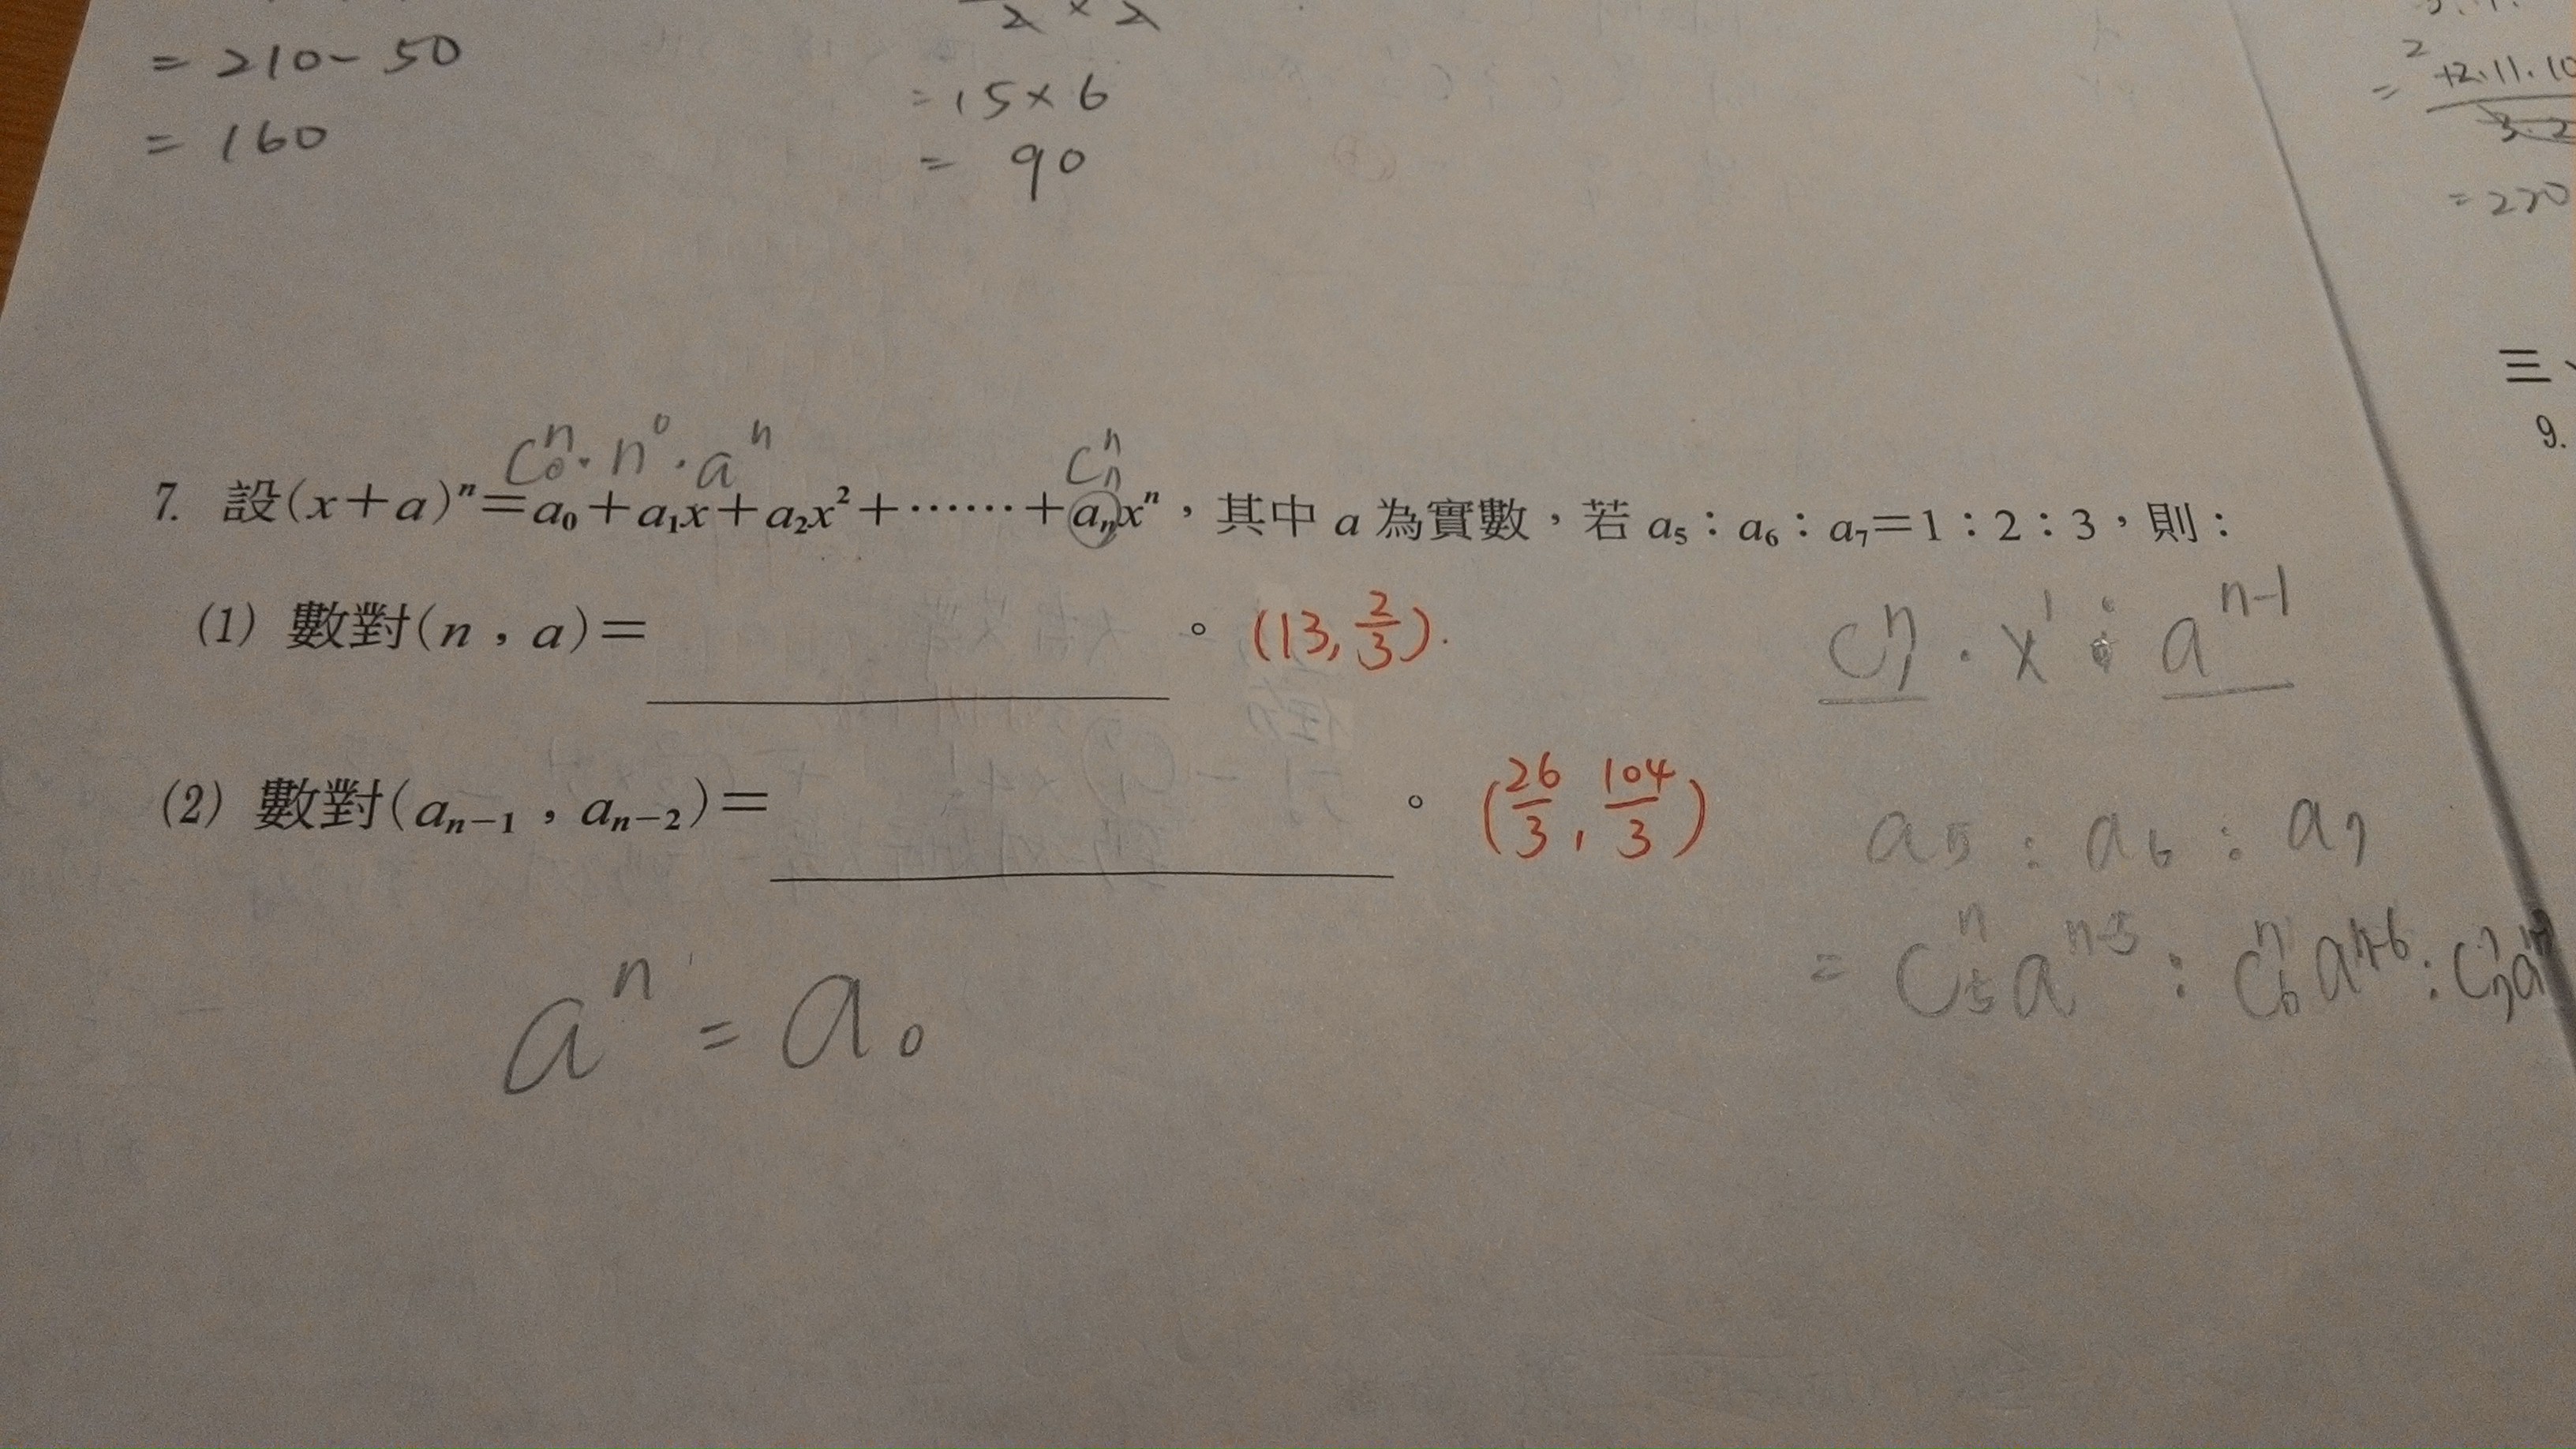 2 × 2
= 210 - 50
= 15 × 6
= 160
= 90
= 220
三、
9.
C₀ⁿ · n⁰ · aⁿ
Cₙⁿ
7. 設(x+a)ⁿ=a₀+a₁x+a₂x²+……+aₙxⁿ,其中 a 為實數,若 a₅:a₆:a₇=1:2:3,則:
(1) 數對(n,a)= 。 (13, 2/3).
C₁ⁿ · x¹ · aⁿ⁻¹
(2) 數對(aₙ₋₁,aₙ₋₂)= 。 (26/3, 104/3)
a₅ : a₆ : a₇
= C₅ⁿ aⁿ⁻⁵ : C₆ⁿ aⁿ⁻⁶ : C₇ⁿ a
aⁿ = a₀